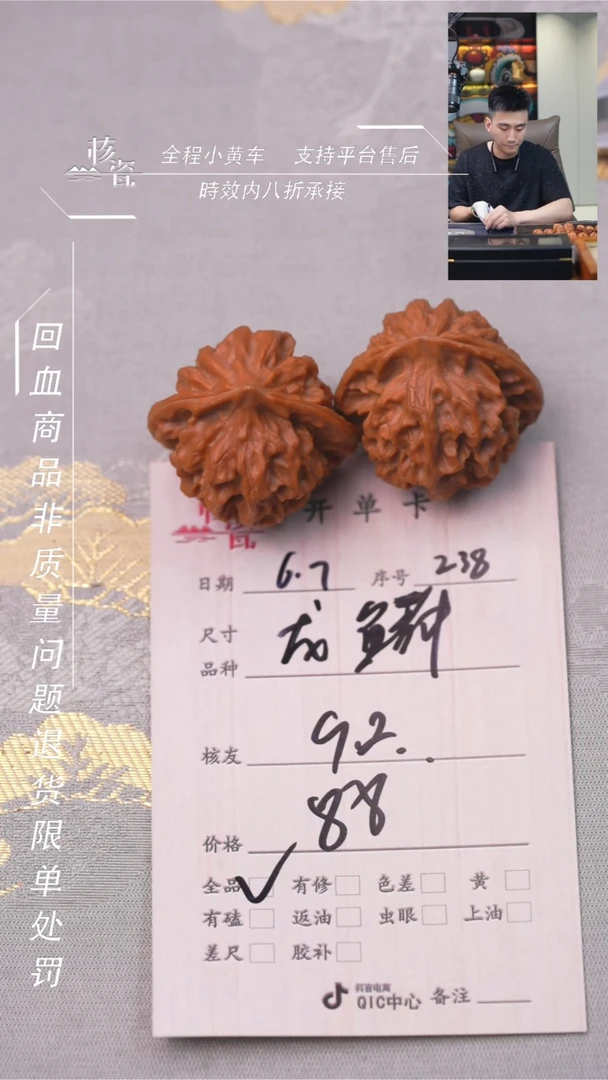 核瓷
全程小黄车 支持平台售后
時效内八折承接
回血商品非质量问题退货限单处罚
开单卡
日期 6.7 序号 238
尺寸
品种 龙鳞
核友 92.
价格 88
全品 ✓ 有修 色差 黄
有磕 返油 虫眼 上油
差尺 胶补
抖音电商
QIC中心 备注